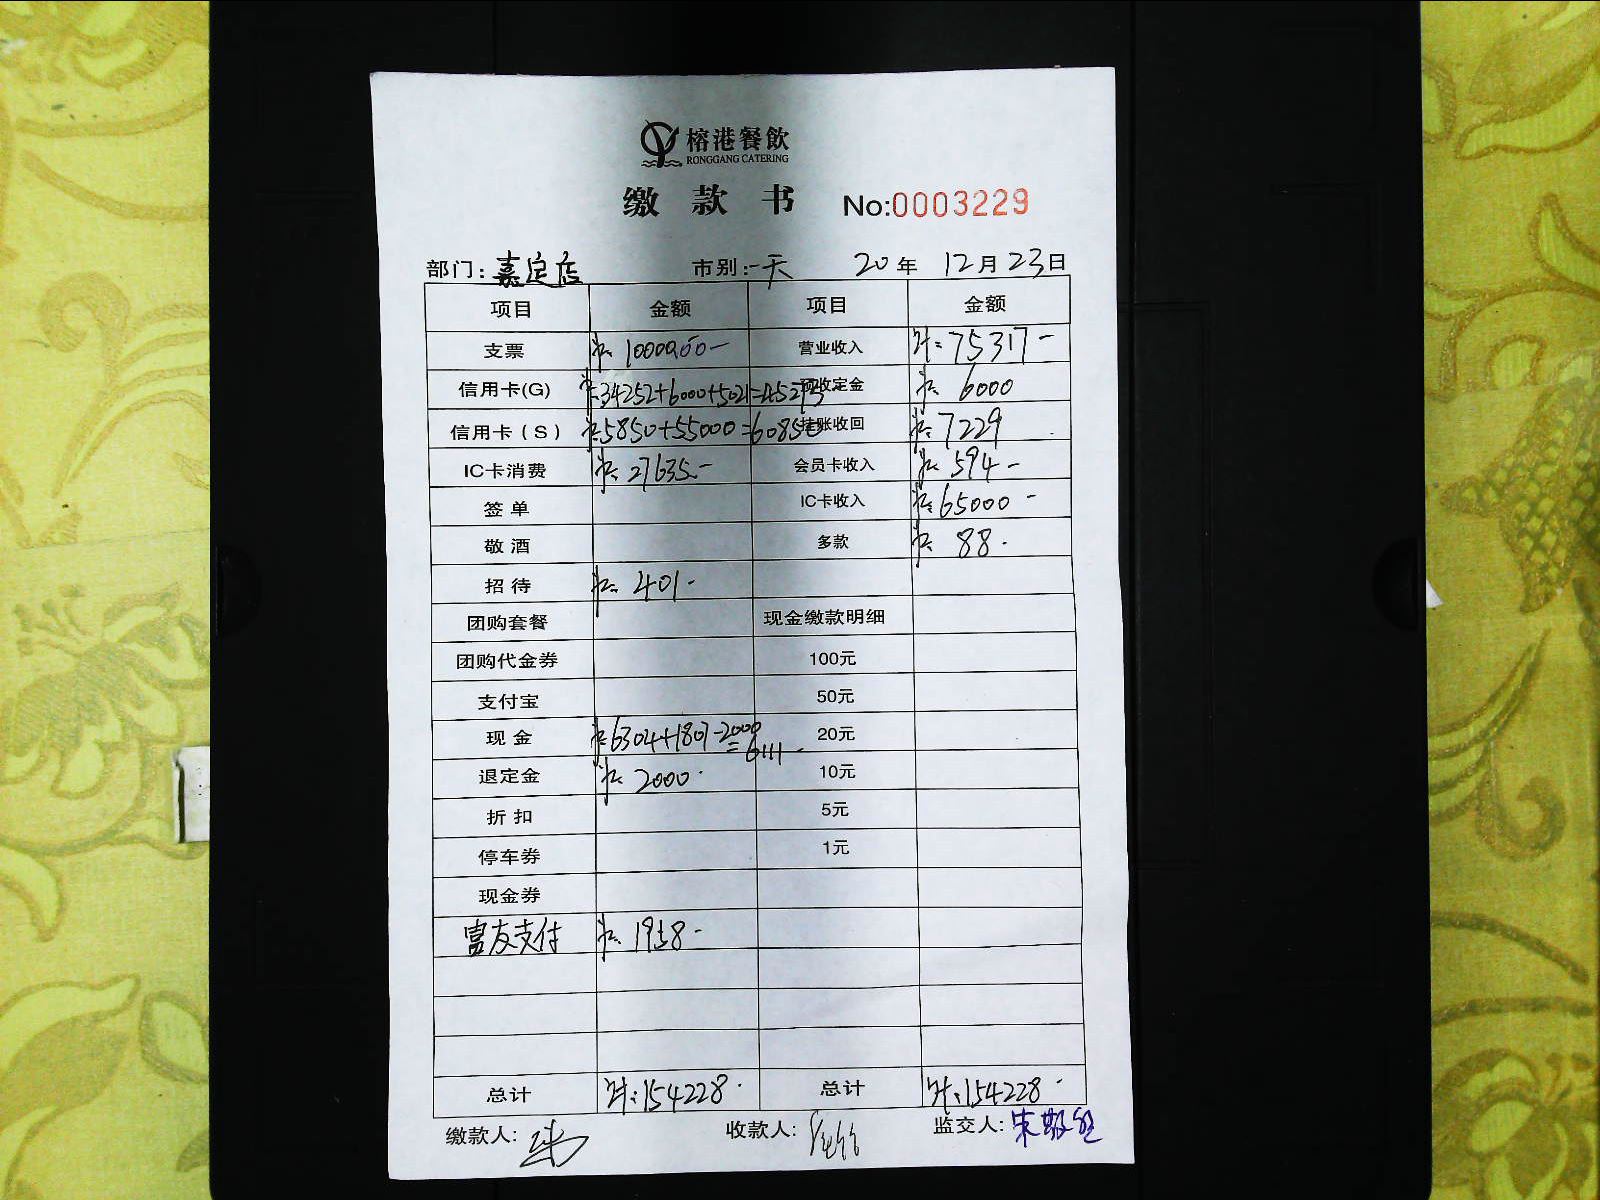 榕港餐飲
RONGGANG CATERING
缴 款 书 No:0003229
部门: 嘉定店 市别: 一天 20年 12月23日
项目 金额 项目 金额
支票 10000.00- 营业收入 计: 75317-
信用卡(G) 34252+6000+5021=45273 预收定金 6000
信用卡(S) 5850+55000=60850 挂账收回 7229
IC卡消费 27635- 会员卡收入 594-
签单 IC卡收入 65000-
敬酒 多款 88.
招待 401-
团购套餐 现金缴款明细
团购代金券 100元
支付宝 50元
现金 6304+1807-2000 20元
=6111-
退定金 2000. 10元
折扣 5元
停车券 1元
现金券
富友支付 1958-
总计 计: 154228. 总计 计: 154228.
缴款人: 收款人: 监交人: 朱